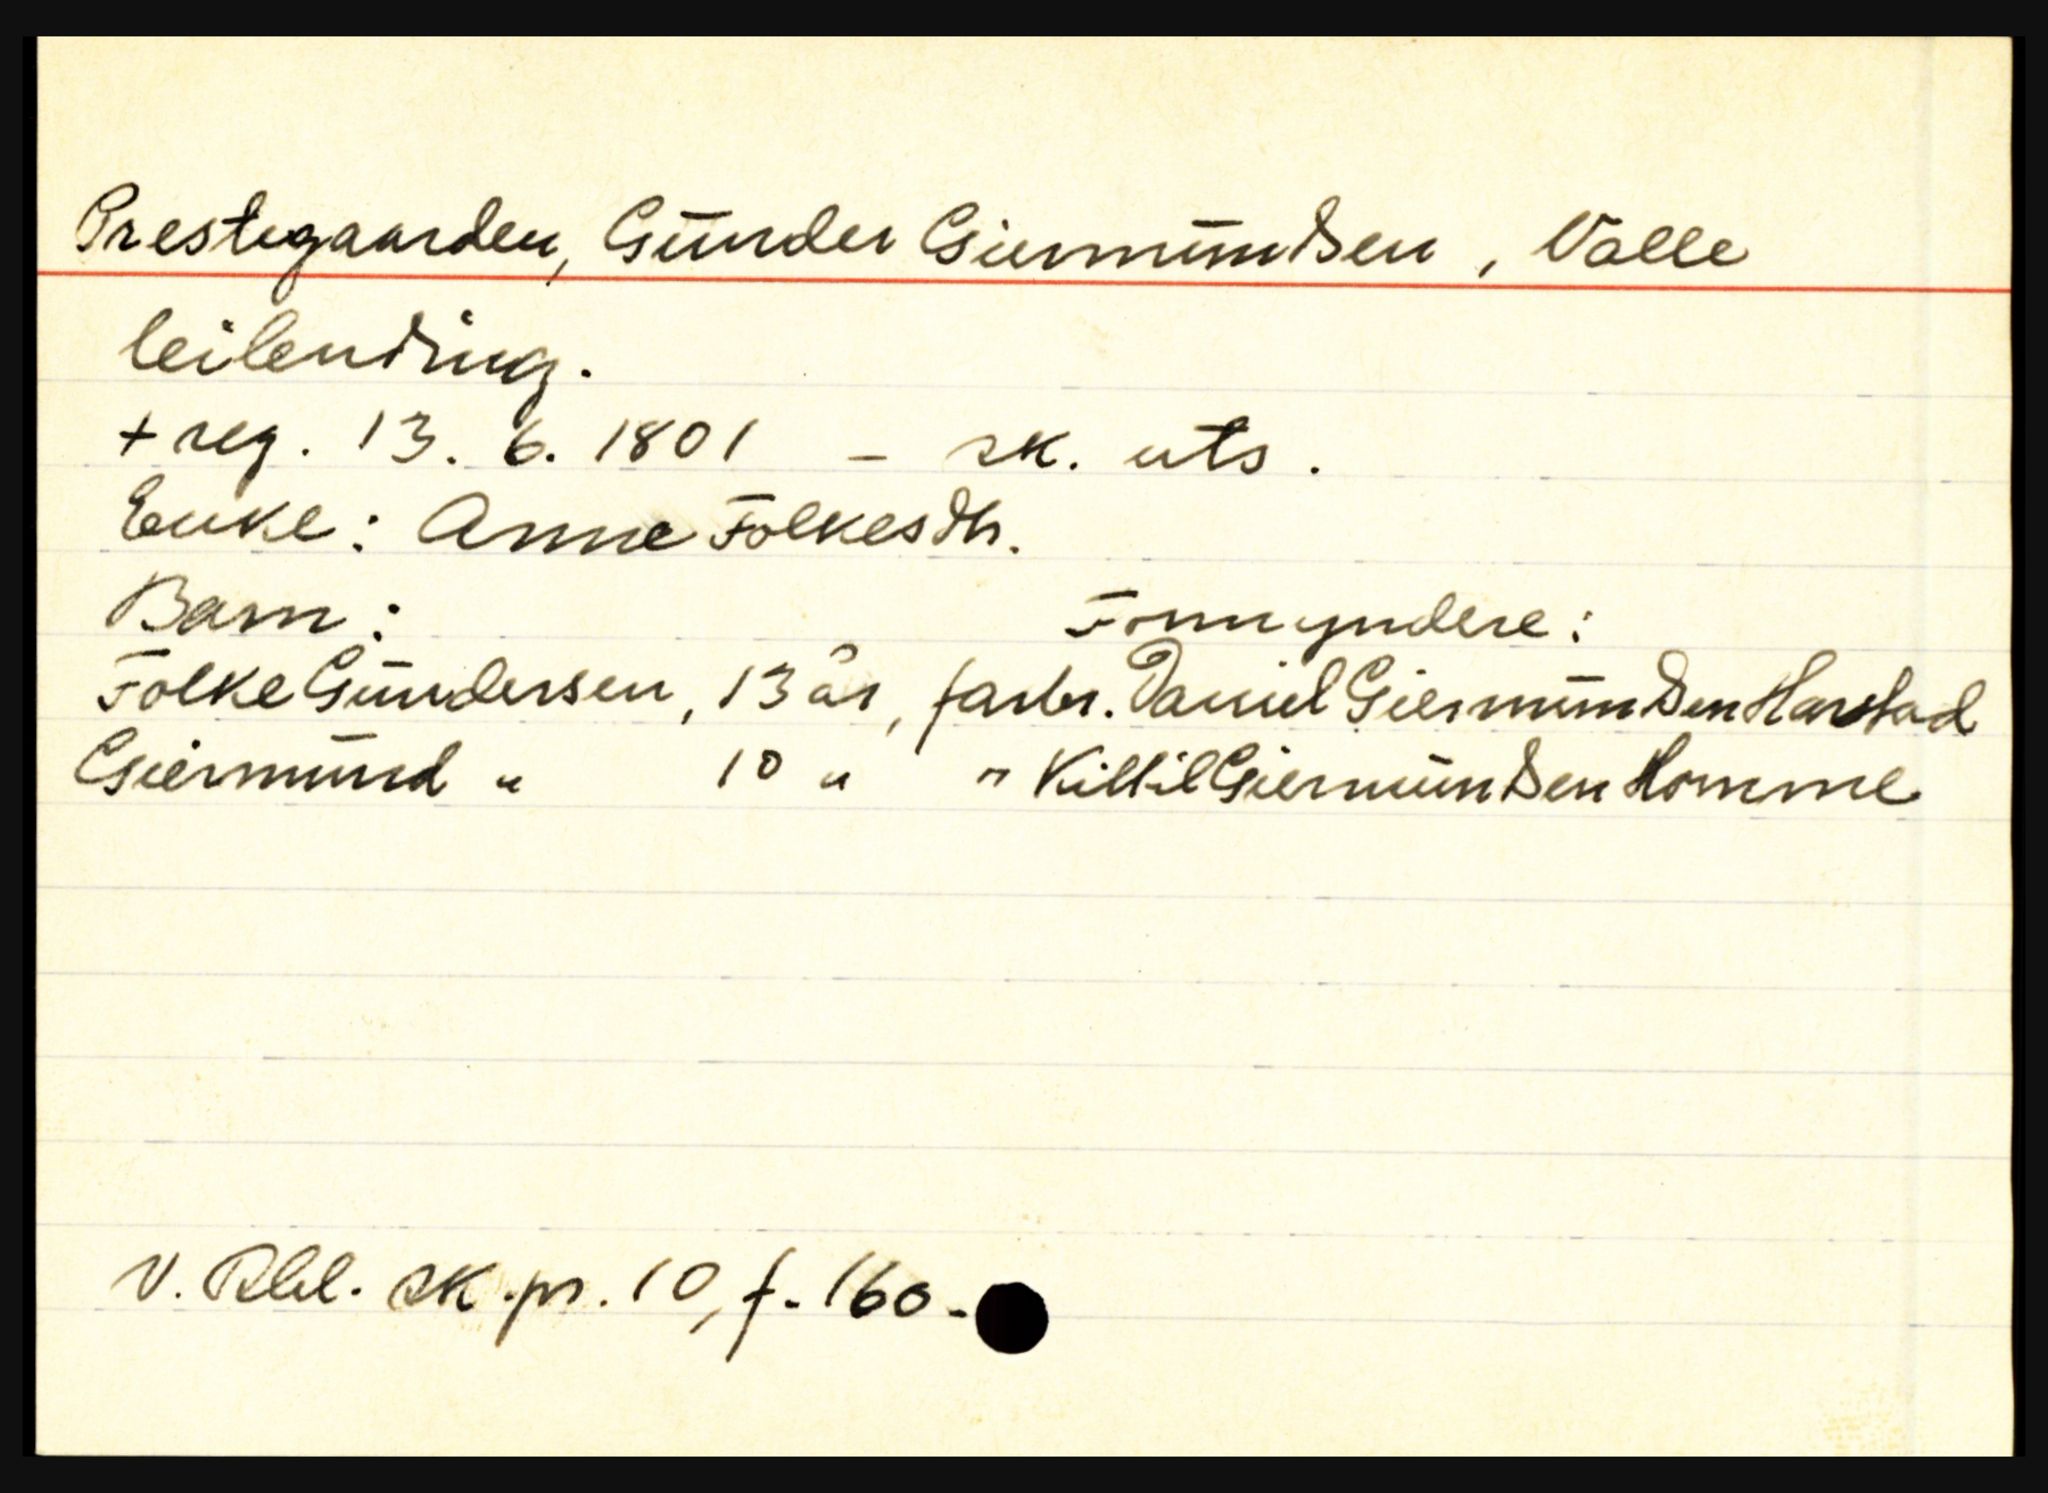 Prestegaarden, Gunder Giermundsen, Valle
leilending.
+ reg. 13. 6. 1801 - sk. uts.
Enke: Anne Folkesdtr.
Barn: Formyndere:
Folke Gundersen, 13 år, farbr. Daniel Giermundsen Harstad
Giermund " 10 " " Kittil Giermundsen Homme
V. Rbl. sk.pr. 10, f. 160.